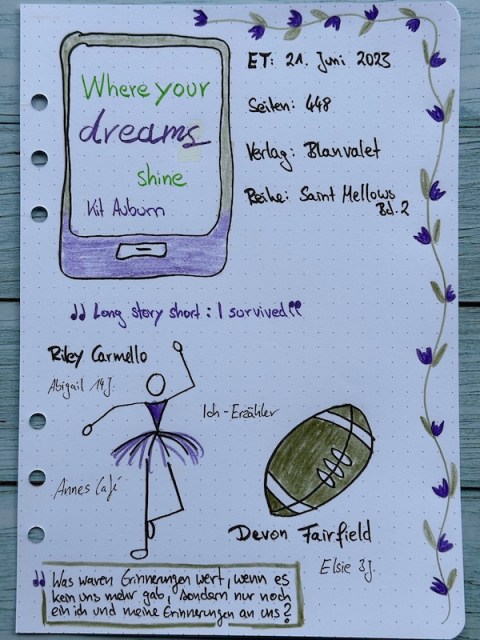 Where your
dreams
shine
Kit Auburn
ET: 21. Juni 2023
Seiten: 448
Verlag: Blanvalet
Reihe: Saint Mellows
Bd. 2
"Long story short: I survived"
Riley Carmello
Abigail 14J.
Ich-Erzähler
Annes Café
Devon Fairfield
Elsie 3J.
"Was waren Erinnerungen wert, wenn es
kein uns mehr gab, sondern nur noch
ein ich und meine Erinnerungen an uns?